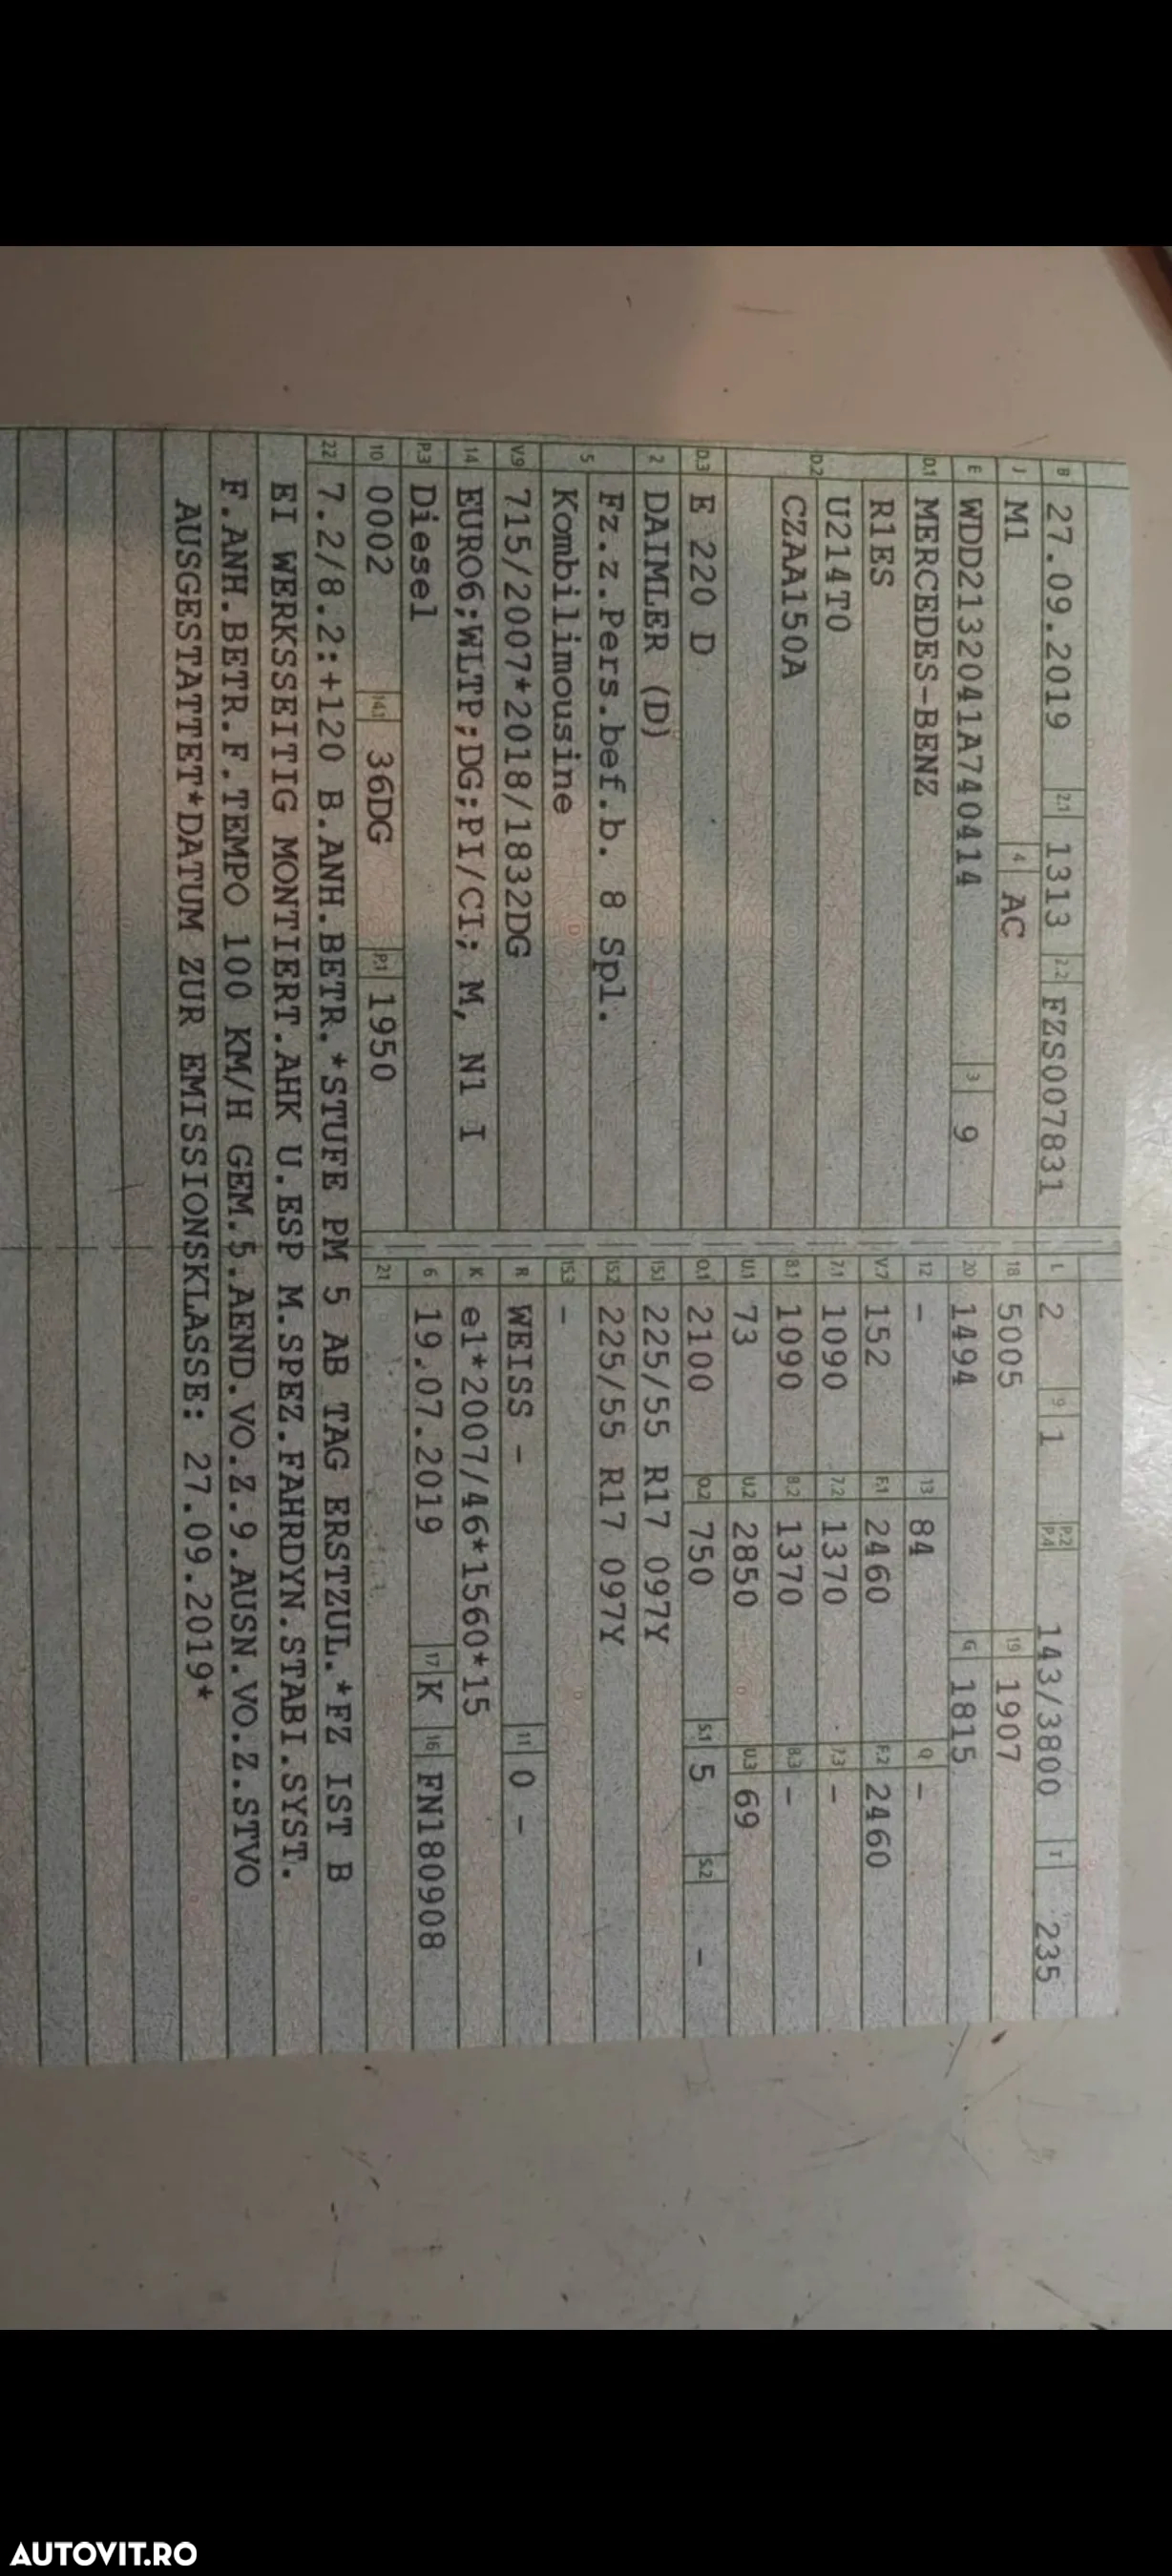 B 27.09.2019 2.1 1313 2.2 FZS007831 L 2 9 1 P.2 P.4 143/3800 T 235
J M1 4 AC 18 5005 19 1907
E WDD2132041A740414 3 9 20 1494 G 1815
D.1 MERCEDES-BENZ 12 - 13 84 Q -
R1ES V.7 152 F.1 2460 F.2 2460
D.2 U214T0 7.1 1090 7.2 1370 7.3 -
CZAA150A 8.1 1090 8.2 1370 8.3 -
U.1 73 U.2 2850 U.3 69
D.3 E 220 D O.1 2100 O.2 750 S.1 5 S.2 -
2 DAIMLER (D) 15.1 225/55 R17 097Y
5 Fz.z.Pers.bef.b. 8 Spl. 15.2 225/55 R17 097Y
Kombilimousine 15.3 -
V.9 715/2007*2018/1832DG R WEISS - 11 0 -
14 EURO6;WLTP;DG;PI/CI; M, N1 I K e1*2007/46*1560*15
P.3 Diesel 6 19.07.2019 17 K 16 FN180908
10 0002 14.1 36DG P.1 1950 21
22 7.2/8.2:+120 B.ANH.BETR.*STUFE PM 5 AB TAG ERSTZUL.*FZ IST B
EI WERKSSEITIG MONTIERT.AHK U.ESP M.SPEZ.FAHRDYN.STABI.SYST.
F.ANH.BETR.F.TEMPO 100 KM/H GEM.5.AEND.VO.Z.9.AUSN.VO.Z.STVO
AUSGESTATTET*DATUM ZUR EMISSIONSKLASSE: 27.09.2019*
AUTOVIT.RO